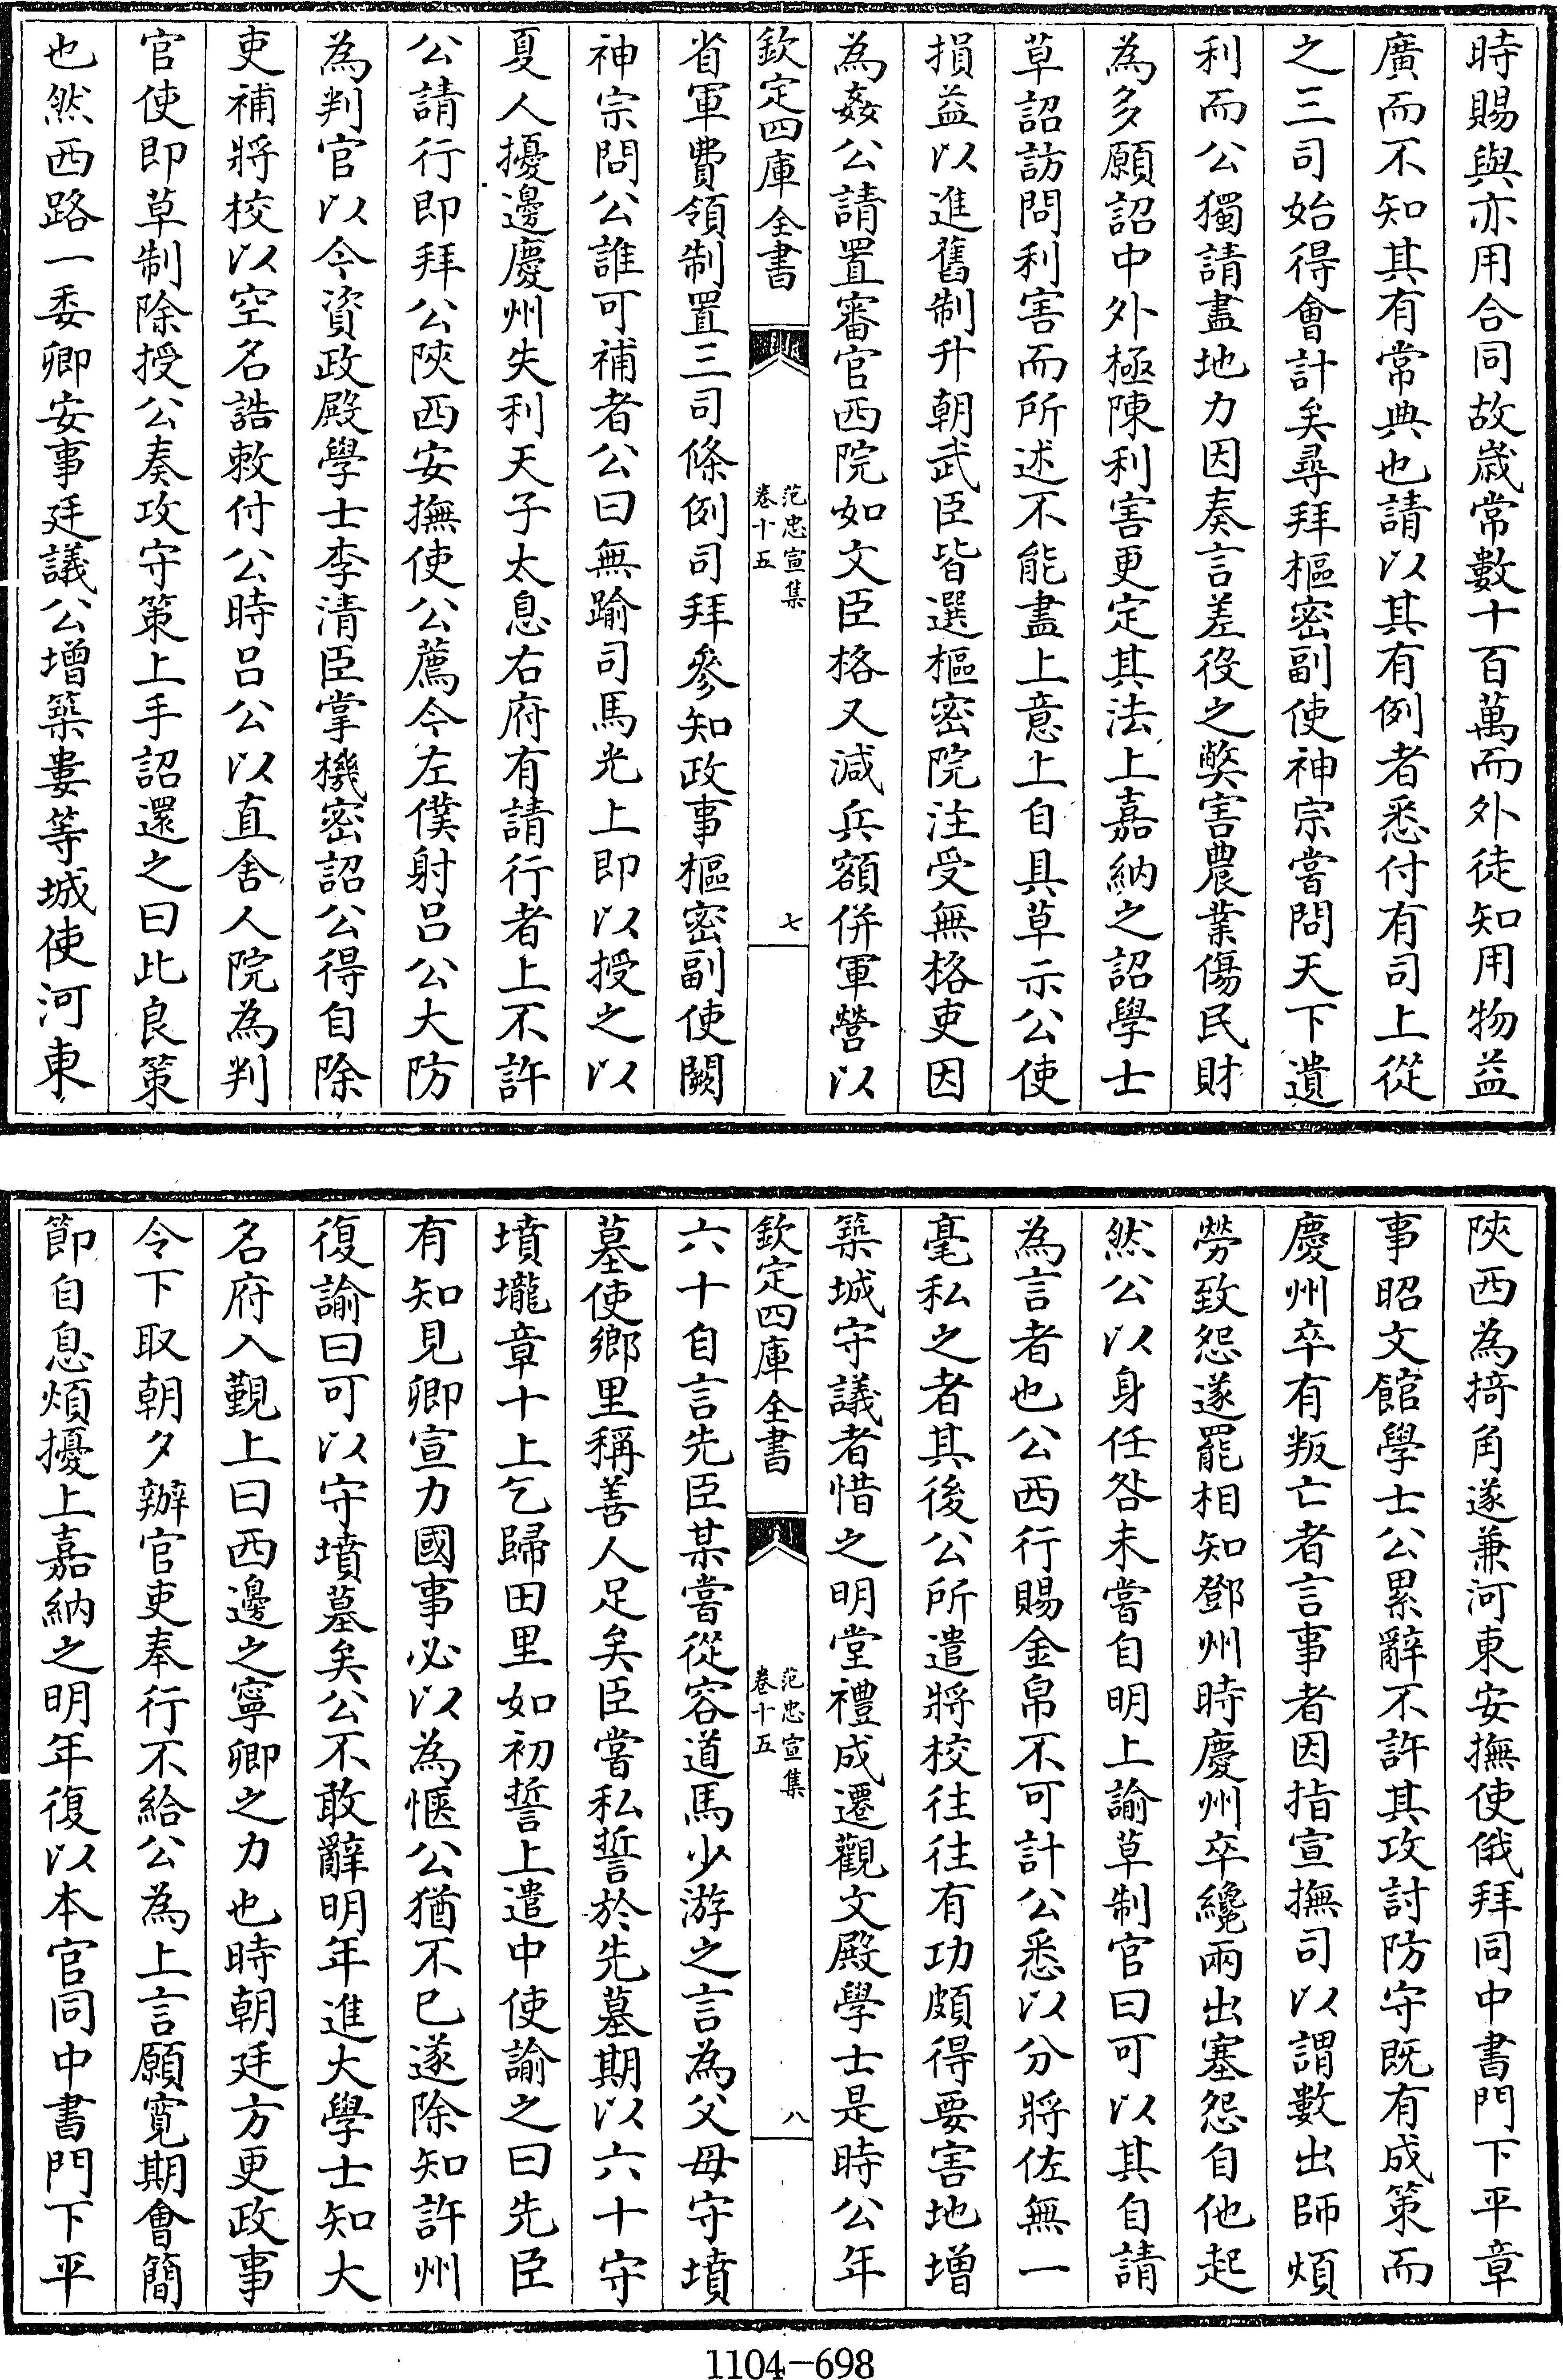 時賜與亦用合同故歲常數十百萬而外徒知用物益
廣而不知其有常典也請以其有例者悉付有司上從
之三司始得會計矣尋拜樞密副使神宗嘗問天下遺
利而公獨請盡地力因奏言差役之弊害農業傷民財
為多願詔中外極陳利害更定其法上嘉納之詔學士
草詔訪問利害而所述不能盡上意上自具草示公使
損益以進舊制升朝武臣皆選樞密院注受無格吏因
為姦公請置審官西院如文臣格又減兵額併軍營以
欽定四庫全書
范忠宣集
卷十五
七
省軍費領制置三司條例司拜參知政事樞密副使闕
神宗問公誰可補者公曰無踰司馬光上即以授之以
夏人擾邊慶州失利天子太息右府有請行者上不許
公請行即拜公陝西安撫使公薦今左僕射呂公大防
為判官以今資政殿學士李清臣掌機密詔公得自除
吏補將校以空名誥敕付公時呂公以直舍人院為判
官使即草制除授公奏攻守策上手詔還之曰此良策
也然西路一委卿安事廷議公增築婁等城使河東
陝西為掎角遂兼河東安撫使俄拜同中書門下平章
事昭文館學士公累辭不許其攻討防守既有成策而
慶州卒有叛亡者言事者因指宣撫司以謂數出師煩
勞致怨遂罷相知鄧州時慶州卒纔兩出塞怨自他起
然公以身任咎未嘗自明上諭草制官曰可以其自請
為言者也公西行賜金帛不可計公悉以分將佐無一
毫私之者其後公所遣將校往往有功頗得要害地增
築城守議者惜之明堂禮成遷觀文殿學士是時公年
欽定四庫全書
范忠宣集
卷十五
八
六十自言先臣某嘗從容道馬少游之言為父母守墳
墓使鄉里稱善人足矣臣嘗私誓於先墓期以六十守
墳壠章十上乞歸田里如初誓上遣中使諭之曰先臣
有知見卿宣力國事必以為愜公猶不已遂除知許州
復諭曰可以守墳墓矣公不敢辭明年進大學士知大
名府入覲上曰西邊之寧卿之力也時朝廷方更政事
令下取朝夕辦官吏奉行不給公為上言願寬期會簡
節自息煩擾上嘉納之明年復以本官同中書門下平
1104-698